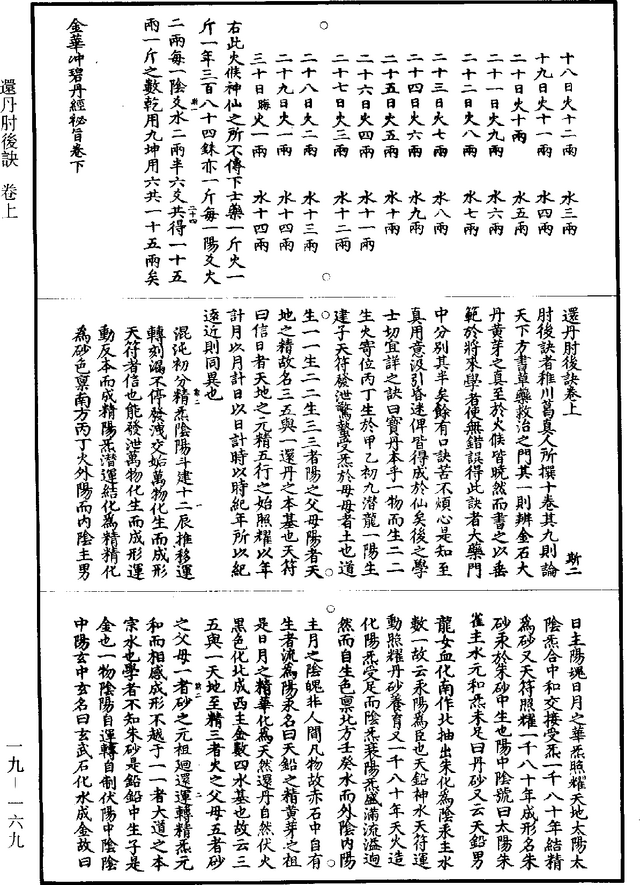 十八日火十二兩　水三兩
十九日火十一兩　水四兩
二十日火十兩　水五兩
二十一日火九兩　水六兩
二十二日火八兩　水七兩
二十三日火七兩　水八兩
二十四日火六兩　水九兩
二十五日火五兩　水十兩
二十六日火四兩　水十一兩
二十七日火三兩　水十二兩
二十八日火二兩　水十三兩
二十九日火一兩　水十四兩
三十日晦火一兩　水十四兩
右此火候神仙之所不傳下士藥一斤火一
斤一年三百八十四銖亦一斤每一陽爻火
二兩每一陰爻水二兩半六爻共得一十五
兩一斤之數乾用九坤用六共一十五兩矣
金華冲碧丹經秘旨卷下
還丹肘後訣卷上　斯二
肘後訣者稚川葛真人所撰十卷其九則論
天下方書草藥救治之門其一則辨金石大
丹黄芽之真至於火候皆曉然而書之以垂
範於將來學者使無錯誤得此訣者大藥門
中分別其半矣餘有口訣苦不煩心是知至
真用意汲引昏迷俾皆得成於仙矣後之學
士切宜詳之訣曰寶丹本乎一物而生二二
生火寄位丙丁生於甲乙初九潜龍一陽生
建子天符發泄驚蟄受炁於母母者土也道
生一一生二二生三三者陽之父母陽者天
地之精故名三五與一還丹之本基也天符
曰信日者天地之元精五行之始照耀以年
計月以月計日以日計時以時紀年所以紀
遠近則同異也
混沌初分精炁陰陽斗建十二辰推移運
轉刻漏不停發洩交姤萬物化生而成形
天符者信也能發泄萬物化生而成形運
動反本而成精陽炁潜運結化為精精化
為砂色禀南方丙丁火外陽而内陰主男
日主陽魂日月之華炁照耀天地太陽太
陰炁合中和交接受炁一千八十年結精
為砂又天符照耀一千八十年成形名朱
砂汞於朱砂中生也陽中陰號曰太陽朱
雀主水元和炁未足曰丹砂又云天鉛男
龍女血化南作北抽出朱化為陰汞主水
數一故云汞陽為臣也天鉛神水天符運
動照耀丹砂養育又一千八十年天火造
化陽炁受足而陰炁葉陽炁盛滿流溢迥
然而自生色禀北方壬癸水而外陰内陽
主月之陰魄非人間凡物故赤石中自有
生者流為陽汞名曰天鉛之精黄芽之祖
是日月之精華化為天然還丹自然伏火
黑色化北成西主金數四水基也故云三
五與一天地至精三者火之父母五者砂
之父母一者砂之元祖迴還運轉精炁元
和而相感成形不越于一一者大道之本
宗水也學者不知朱砂是鉛鉛中生子是
金也一物陰陽自運轉自制伏陽中陰陰
中陽玄中玄名曰玄武石化水成金故曰
還丹肘後訣　卷上
一九－一六九